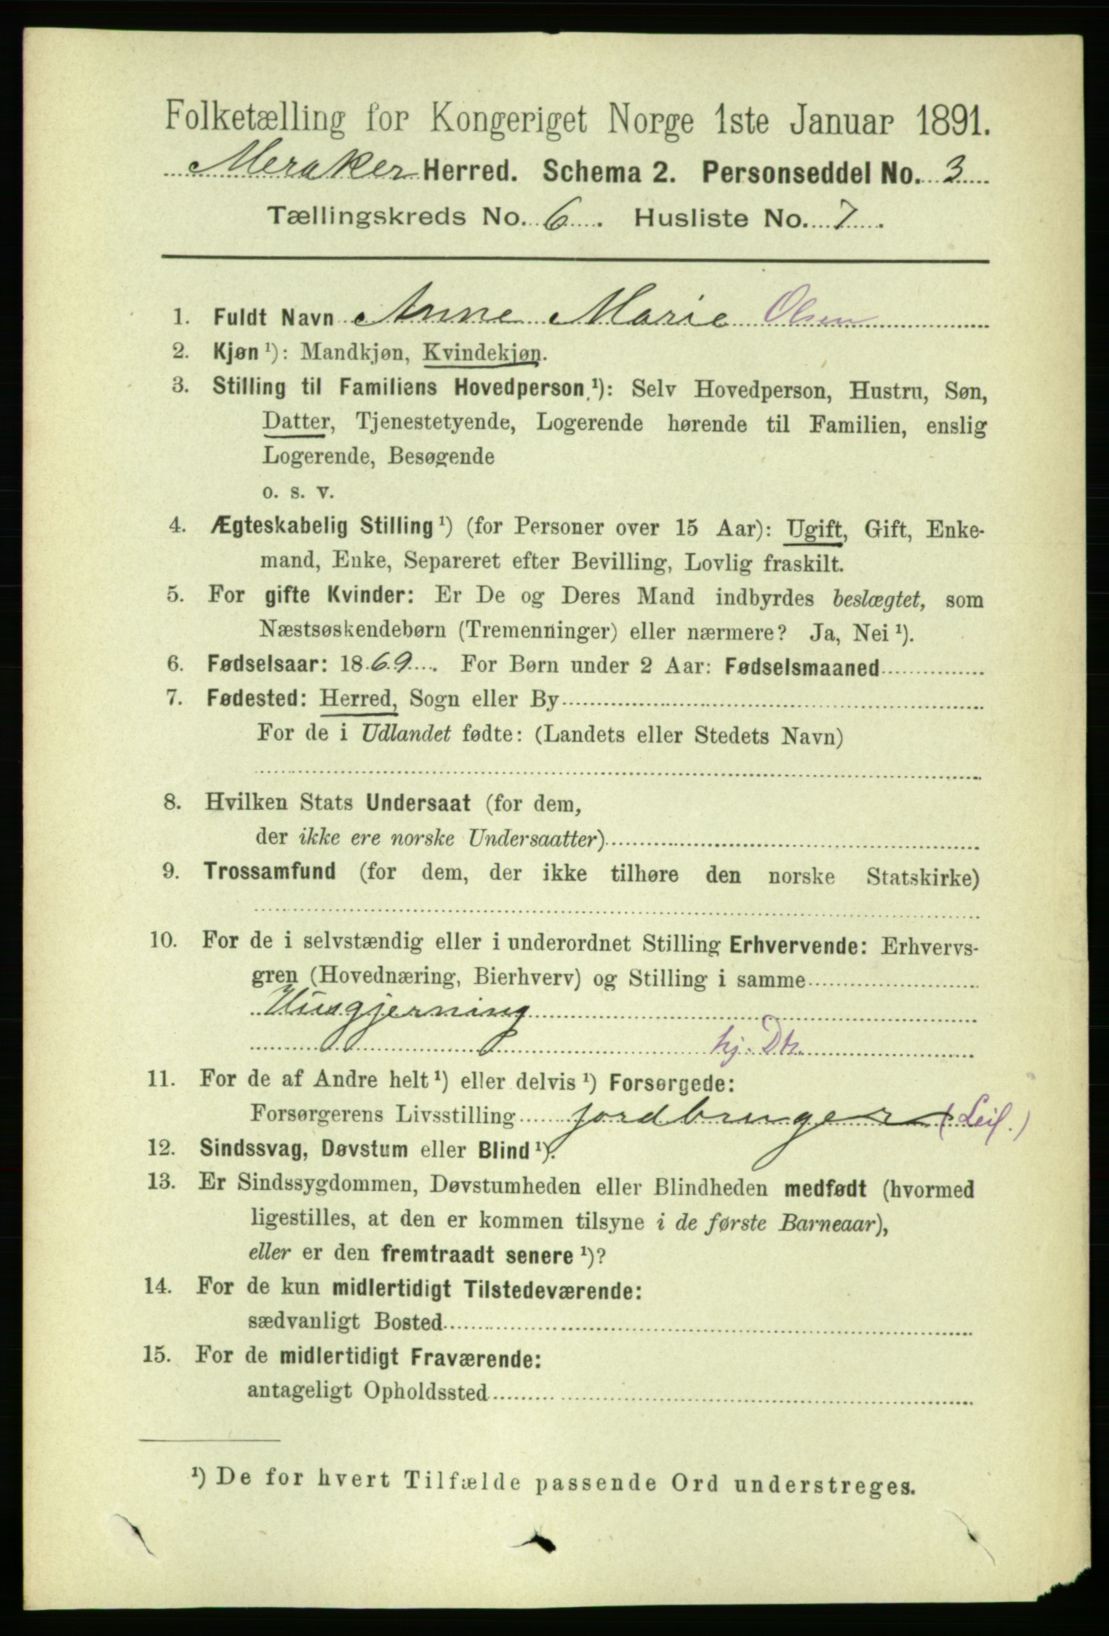 Folketælling for Kongeriget Norge 1ste Januar 1891.
Meraker Herred. Schema 2. Personseddel No. 3
Tællingskreds No. 6. Husliste No. 7.
1. Fuldt Navn Anne Marie Olsen
2. Kjøn ¹): Mandkjøn, Kvindekjøn.
3. Stilling til Familiens Hovedperson ¹): Selv Hovedperson, Hustru, Søn,
Datter, Tjenestetyende, Logerende hørende til Familien, enslig
Logerende, Besøgende
o. s. v.
4. Ægteskabelig Stilling ¹) (for Personer over 15 Aar): Ugift, Gift, Enke-
mand, Enke, Separeret efter Bevilling, Lovlig fraskilt.
5. For gifte Kvinder: Er De og Deres Mand indbyrdes beslægtet, som
Næstsøskendebørn (Tremenninger) eller nærmere? Ja, Nei ¹).
6. Fødselsaar: 1869. For Børn under 2 Aar: Fødselsmaaned
7. Fødested: Herred, Sogn eller By
For de i Udlandet fødte: (Landets eller Stedets Navn)
8. Hvilken Stats Undersaat (for dem,
der ikke ere norske Undersaatter)
9. Trossamfund (for dem, der ikke tilhøre den norske Statskirke)
10. For de i selvstændig eller i underordnet Stilling Erhvervende: Erhvervs-
gren (Hovednæring, Bierhverv) og Stilling i samme
Husgjerning
hj. Dtr.
11. For de af Andre helt ¹) eller delvis ¹) Forsørgede:
Forsørgerens Livsstilling jordbruger (Leil.)
12. Sindssvag, Døvstum eller Blind ¹).
13. Er Sindssygdommen, Døvstumheden eller Blindheden medfødt (hvormed
ligestilles, at den er kommen tilsyne i de første Barneaar),
eller er den fremtraadt senere ¹)?
14. For de kun midlertidigt Tilstedeværende:
sædvanligt Bosted
15. For de midlertidigt Fraværende:
antageligt Opholdssted
¹) De for hvert Tilfælde passende Ord understreges.